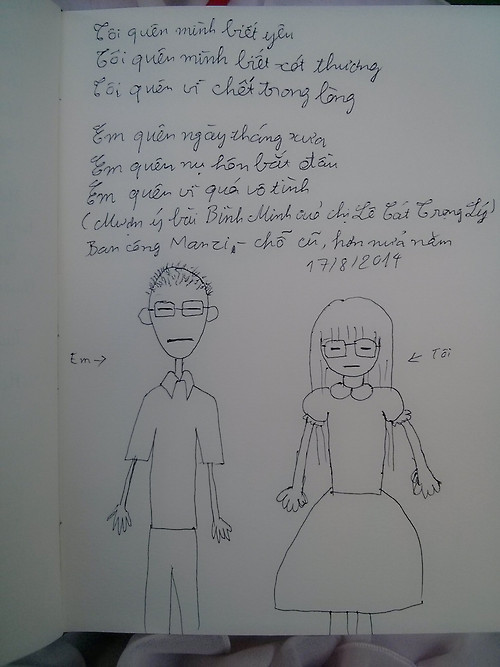 Tôi quên mình biết yêu
Tôi quên mình biết xót thương
Tôi quên vì chết trong lòng
Em quên ngày tháng xưa
Em quên nụ hôn bắt đầu
Em quên vì quá vô tình
(Mượn ý bài Bình Minh của chị Lê Cát Trọng Lý)
Ban công Manzi - chỗ cũ, hơn nửa năm
17/8/2014
Em →
← Tôi